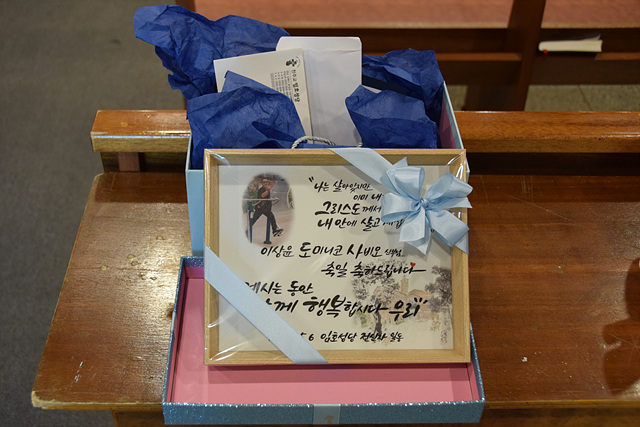 "나는 살아있지만
이미 내
그리스도께서
내 안에 살고
이상윤 도미니코 사비오
축일 축하드립니다
계시는 동안
함께 행복합시다 우리"
5.6 임호성당 전신자 일동